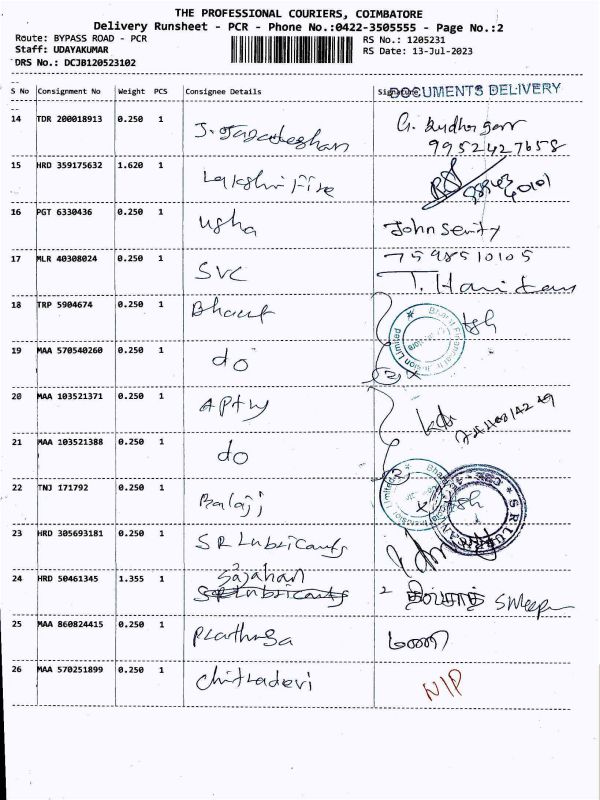 THE PROFESSIONAL COURIERS, COIMBATORE
Delivery Runsheet - PCR - Phone No.:0422-3505555 - Page No.:2
Route: BYPASS ROAD - PCR RS No.: 1205231
Staff: UDAYAKUMAR RS Date: 13-Jul-2023
DRS No.: DCJB120523102
S No Consignment No Weight PCS Consignee Details Signature DOCUMENTS DELIVERY
14 TDR 200018913 0.250 1 J. Jagadeshan
9952427658
15 HRD 359175632 1.620 1 Lakshmi Fire
16 PGT 6330436 0.250 1 usha John
17 MLR 40308024 0.250 1 SVC 7598510105
18 TRP 5904674 0.250 1 Bharat
19 MAA 570540260 0.250 1 do
20 MAA 103521371 0.250 1
21 MAA 103521388 0.250 1 do
22 TNJ 171792 0.250 1 Balaji
23 HRD 305693181 0.250 1 SR Lubricants
24 HRD 50461345 1.355 1 Sajahan
25 MAA 860824415 0.250 1 மணி
26 MAA 570251899 0.250 1 Chitradevi NIP